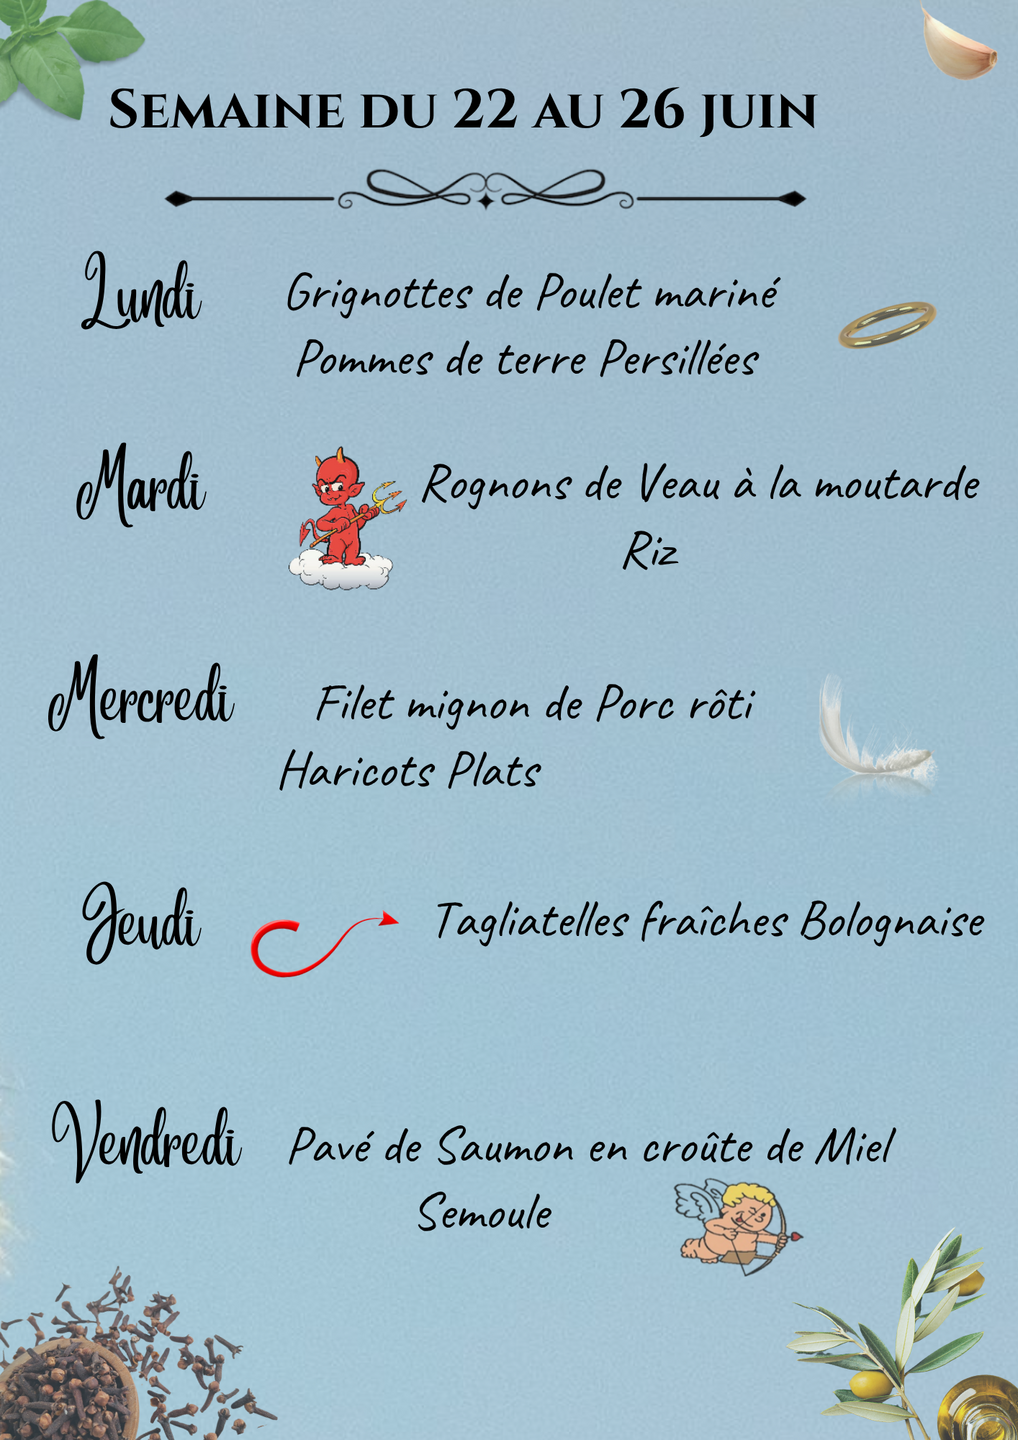 Semaine du 22 au 26 juin
Lundi
Grignottes de Poulet mariné
Pommes de terre Persillées
Mardi
Rognons de Veau à la moutarde
Riz
Mercredi
Filet mignon de Porc rôti
Haricots Plats
Jeudi
Tagliatelles fraîches Bolognaise
Vendredi
Pavé de Saumon en croûte de Miel
Semoule